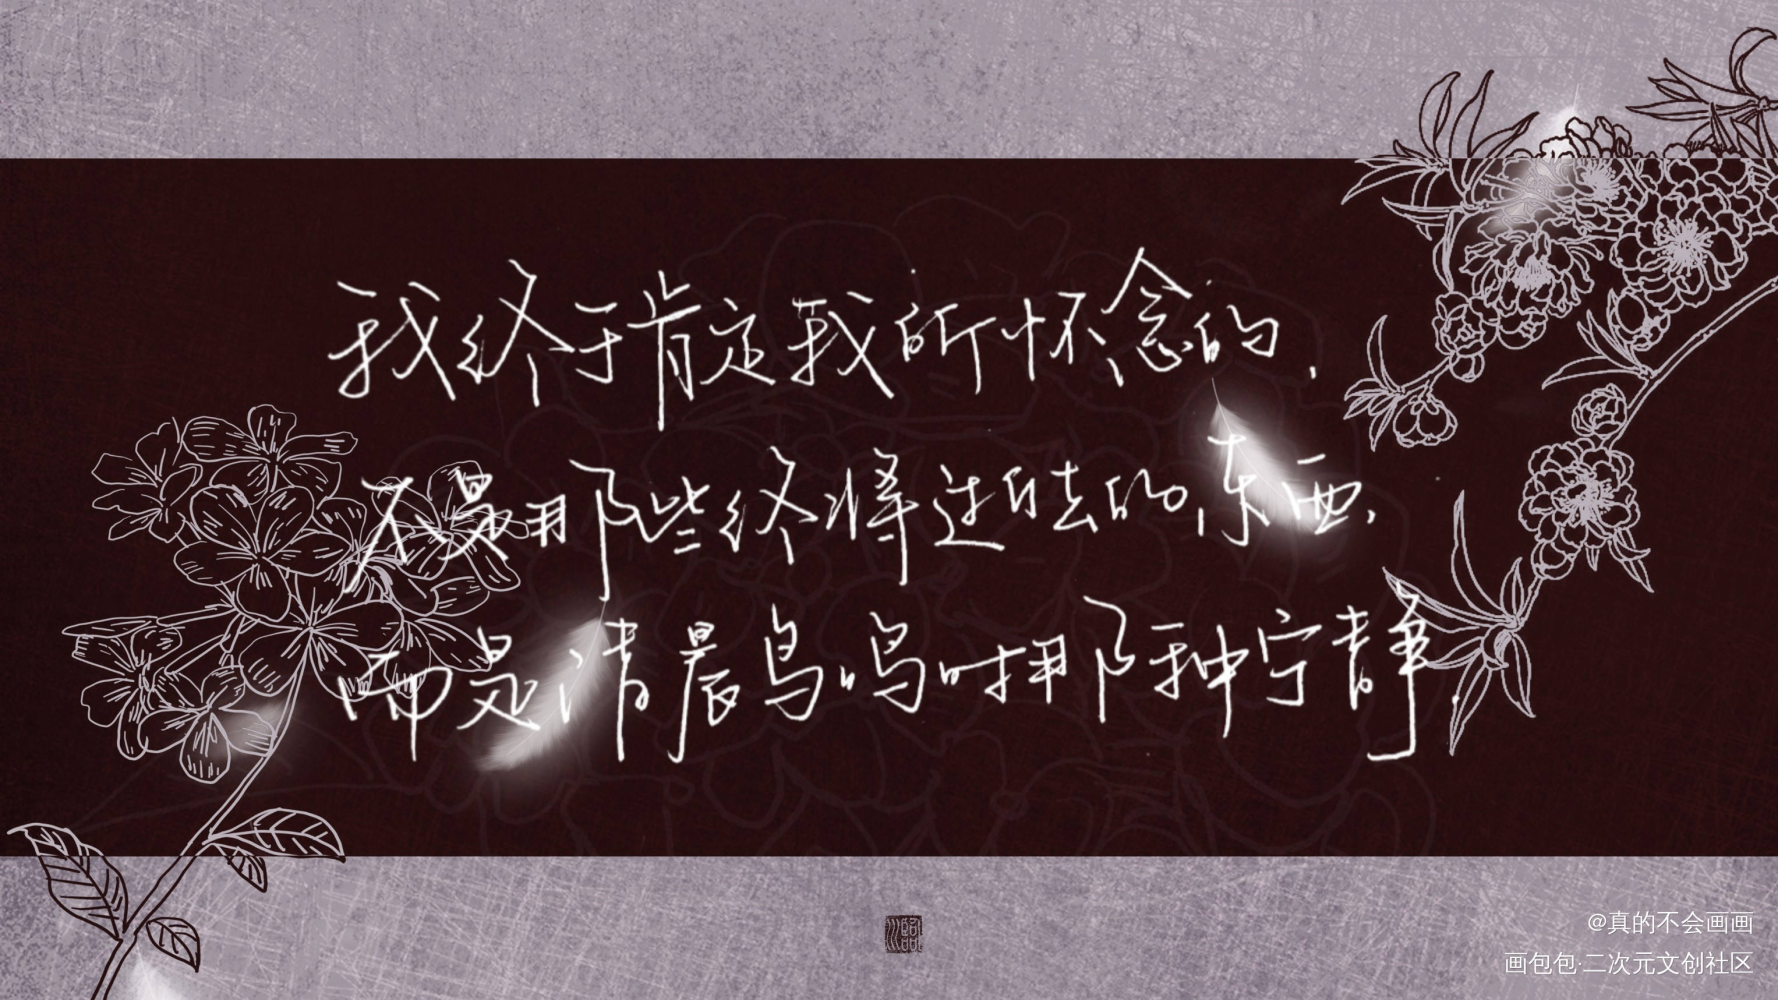 我终于肯定我所怀念的,
不是那些终将过去的东西,
而是清晨鸟鸣时那种宁静.
@真的不会画画
画包包·二次元文创社区